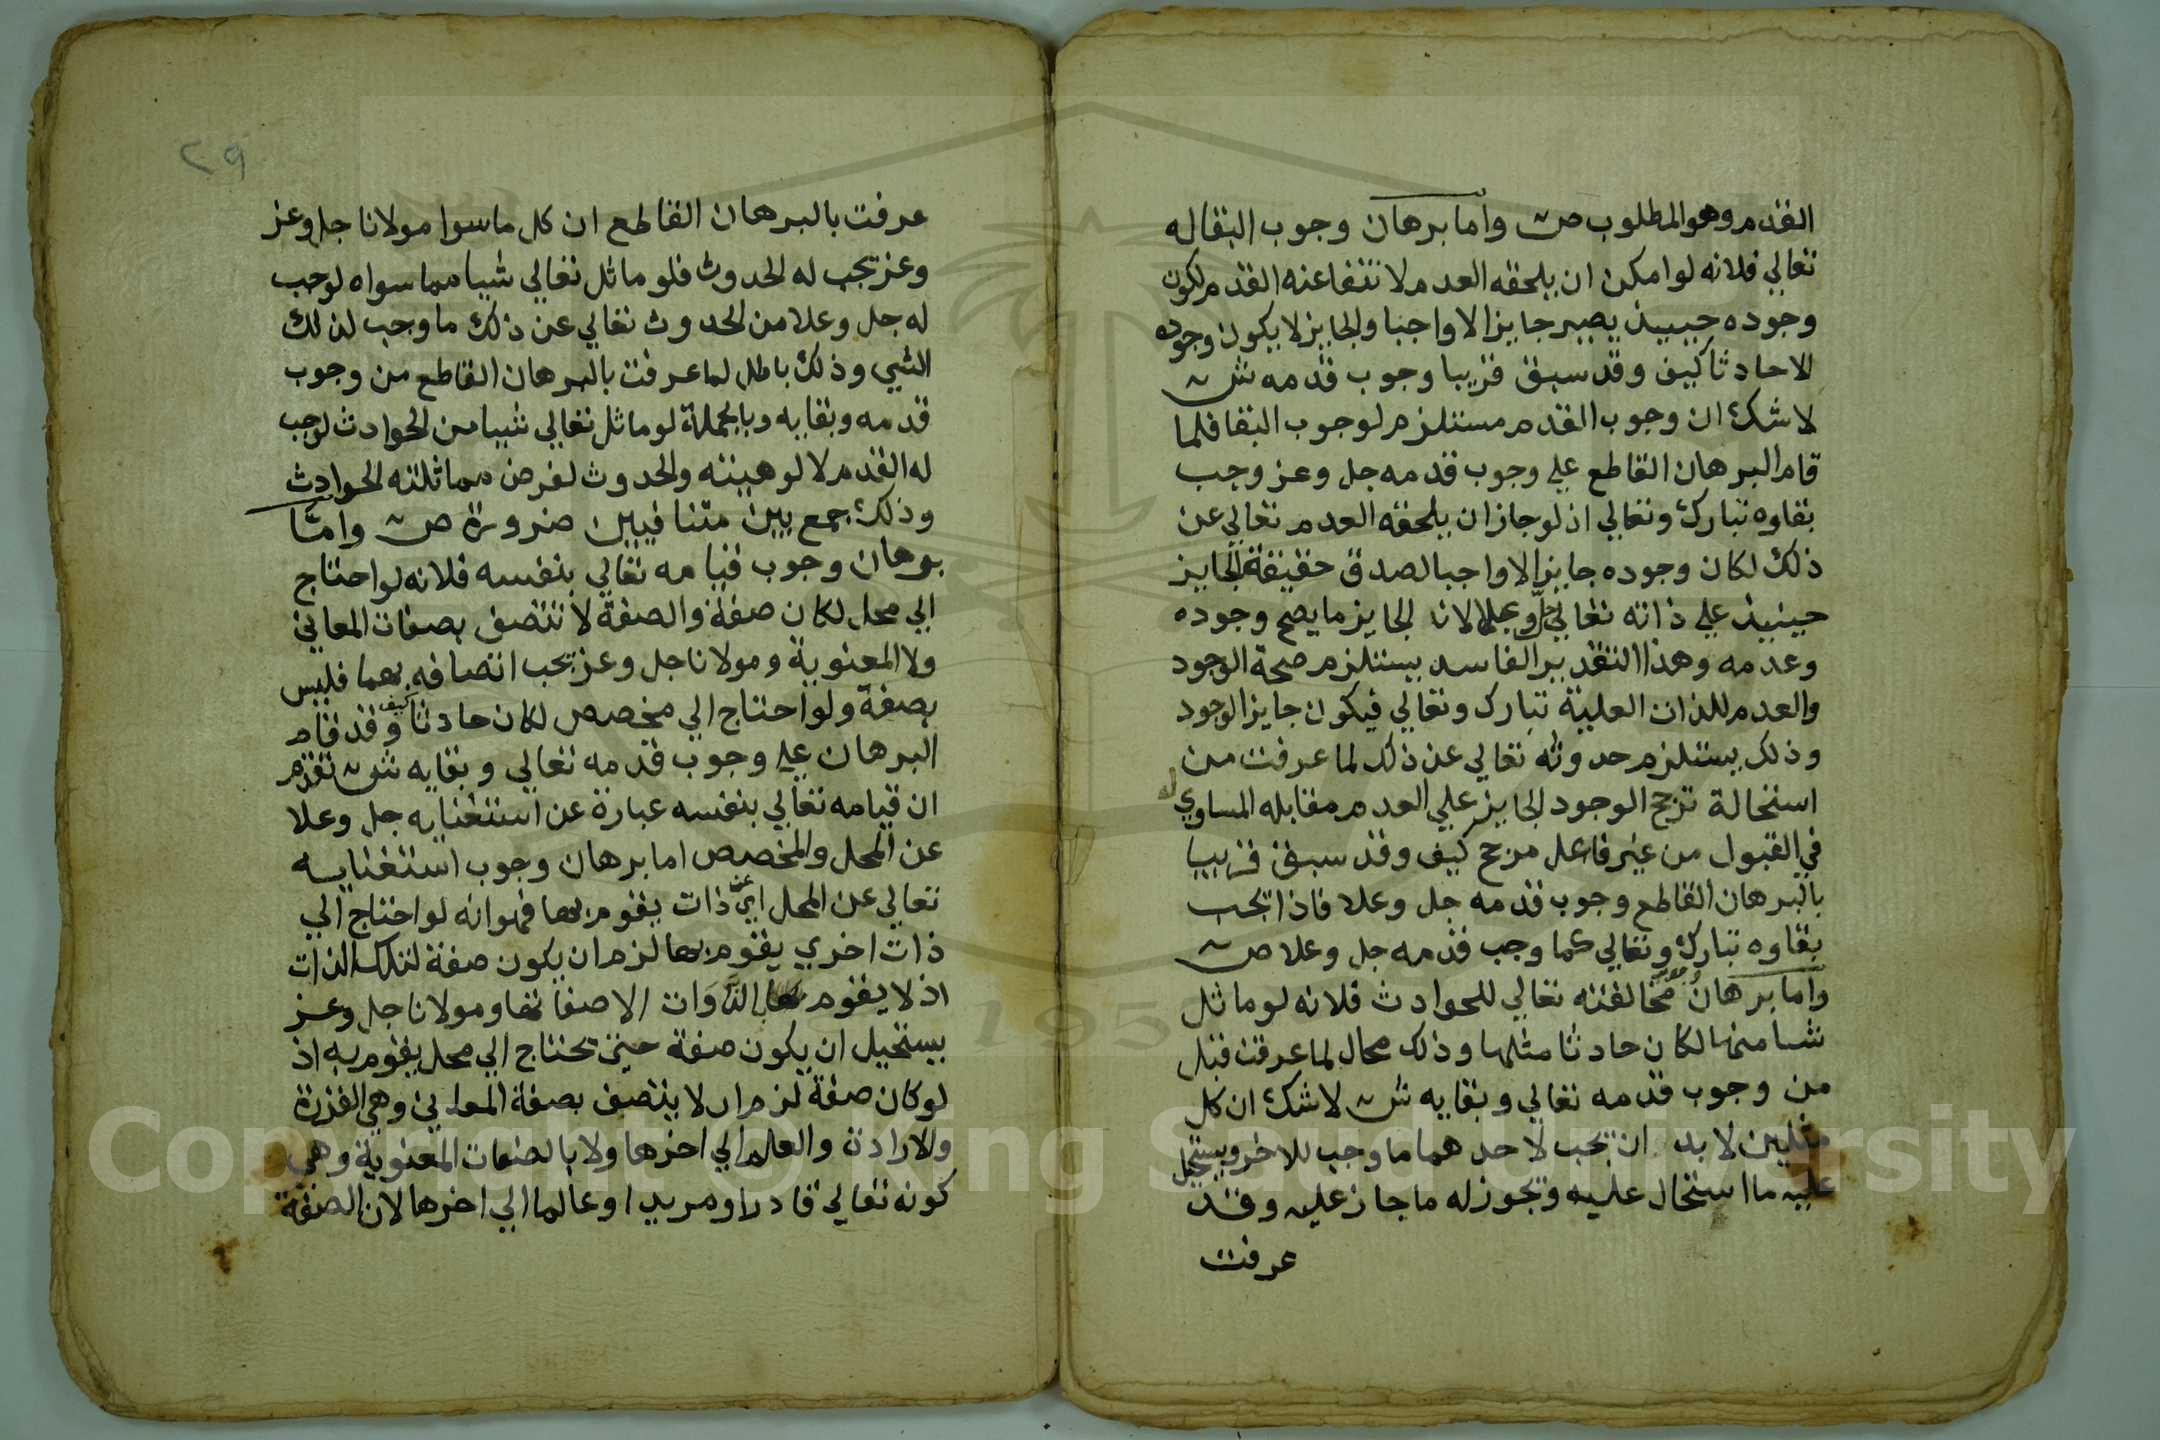 القدم وهو المطلوب ص واما برهان وجوب البقا له
تعالي فلانه لو امكن ان يلحقه العدم لانتفا عنه القدم لكون
وجوده حينيذ يصير جايزا لا واجبا والجايز لا يكون وجوده
الا حادثا كيف وقد سبق قريبا وجوب قدمه ش
لا شك ان وجوب القدم مستلزم لوجوب البقا فلما
قام البرهان القاطع علي وجوب قدمه جل وعز وجب
بقاوه تبارك وتعالي اذ لو جاز ان يلحقه العدم تعالي عن
ذلك لكان وجوده جايزا لا واجبا لصدق حقيقة الجايز
حينيذ علي ذاته تعالي جل وعلا لان الجايز ما يصح وجوده
وعدمه وهذا التقدير الفاسد يستلزم صحة الوجود
والعدم للذات العلية تبارك وتعالي فيكون جايز الوجود
وذلك يستلزم حدوثه تعالي عن ذلك لما عرفت من
استحالة ترجح الوجود الجايز علي العدم مقابله المساوي له
في القبول من غير فاعل مرجح كيف وقد سبق قريبا
بالبرهان القاطع وجوب قدمه جل وعلا فاذا تجب
بقاوه تبارك وتعالي كما وجب قدمه جل وعلا ص
واما برهان مخالفته تعالي للحوادث فلانه لو ماثل
شيا منها لكان حادثا مثلها وذلك محال لما عرفت قبل
من وجوب قدمه تعالي وبقايه ش لا شك ان كل
مثلين لا بد ان تجب لاحدهما ما وجب للاخر ويستحيل
عليه ما استحال عليه وتجوز له ما جاز عليه وقد
عرفت
٢٩
عرفت بالبرهان القاطع ان كل ما سوا مولانا جل وعز
وعز تجب له الحدوث فلو ماثل تعالي شيا مما سواه لوجب
له جل وعلا من الحدوث تعالي عن ذلك ما وجب لذلك
الشي وذلك باطل لما عرفت بالبرهان القاطع من وجوب
قدمه وبقايه وبالجملة لو ماثل تعالي شيا من الحوادث لوجب
له القدم لالوهيته والحدوث لفرض مماثلته الحوادث
وذلك جمع بين متنافيين ضرورة ص واما
برهان وجوب قيامه تعالي بنفسه فلانه لو احتاج
الي محل لكان صفة والصفة لا تتصف بصفات المعاني
ولا المعنوية ومولانا جل وعز تجب اتصافه بهما فليس
بصفة ولو احتاج الي مخصص لكان حادثا كيف وقد قام
البرهان علي وجوب قدمه تعالي وبقايه ش تقدم
ان قيامه تعالي بنفسه عبارة عن استغنايه جل وعلا
عن المحل والمخصص اما برهان وجوب استغنايه
تعالي عن المحل اي عن ذات يقوم بها فهو انه لو احتاج الي
ذات اخري يقوم بها لزم ان يكون صفة لتلك الذات
اذ لا يقوم بالذوات الا صفاتها ومولانا جل وعز
يستحيل ان يكون صفة حتي تحتاج الي محل يقوم به اذ
لو كان صفة لزم ان لا يتصف بصفة المعاني وهي القدرة
والارادة والعلم الي اخرها ولا بالصفات المعنوية وهي
كونه تعالي قادرا ومريدا وعالما الي اخرها لان الصفة
Copyright © King Saud University
1957